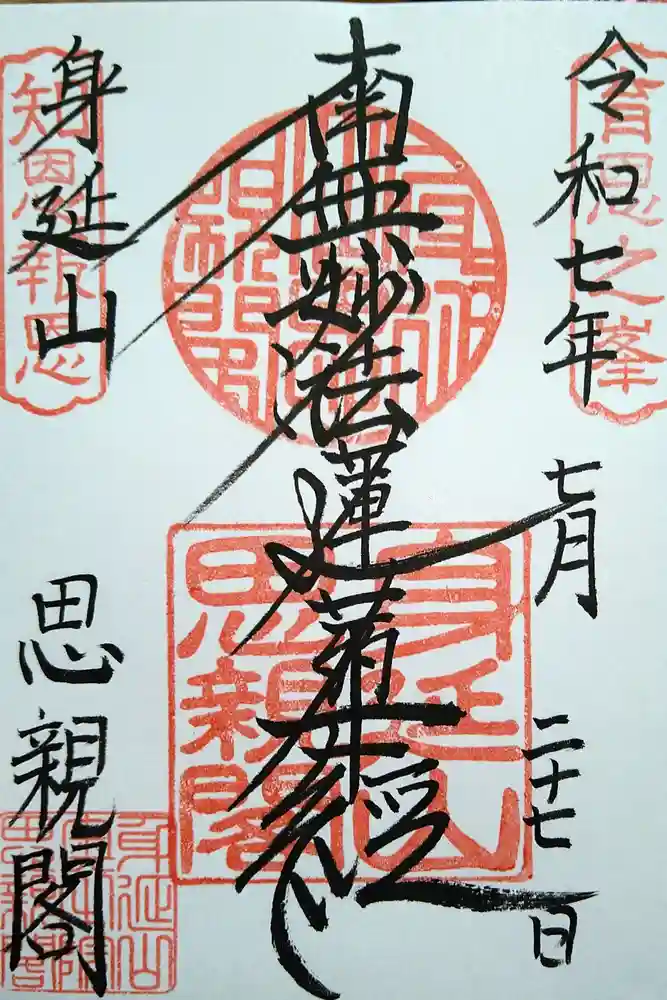 令和七年
七月
二十七日
育恩之峯
南無妙法蓮華経
身延山
思親閣
身延山
知恩報恩
思親閣
身延山